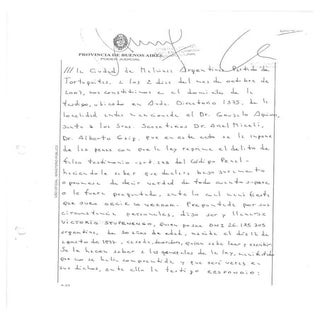 PROVINCIA DE BUENOS AIRES
PODER JUDICIAL
/// la Ciudad de Malvinas Argentinas Partido de
Tortuguitas, a los 2 días del mes de octubre de
2007, nos constituimos en el domicilio de la
testigo, ubicado en Avda. Directorio 1375, de la
localidad antes mencionada el Dr. Gonzalo Aquino
junto a los Sres. Secretarios Dr. Ariel Miceli,
Dr. Alberto, que en este acto se la impone
de las penas con que la ley reprime el delito de
falso testimonio art. 275 del Código Penal-
haciéndole saber que deberá bajo juramento
o promesa de decir verdad de todo cuanto supiere
o le fuere preguntado, ante lo cual manifiesta
que JURA DECIR LA VERDAD. Preguntada por sus
circunstancias personales, dijo ser y llamarse
VICTORIA, quien posee DNI
argentina, de años de edad, nacida el día 12 de
agosto de, quien sabe leer y escribir
Se le hacen saber a las generales de la ley, manifestando
que no se halla comprendida y que será veraz en
sus dichos, ante ello la testigo RESPONDIÓ: